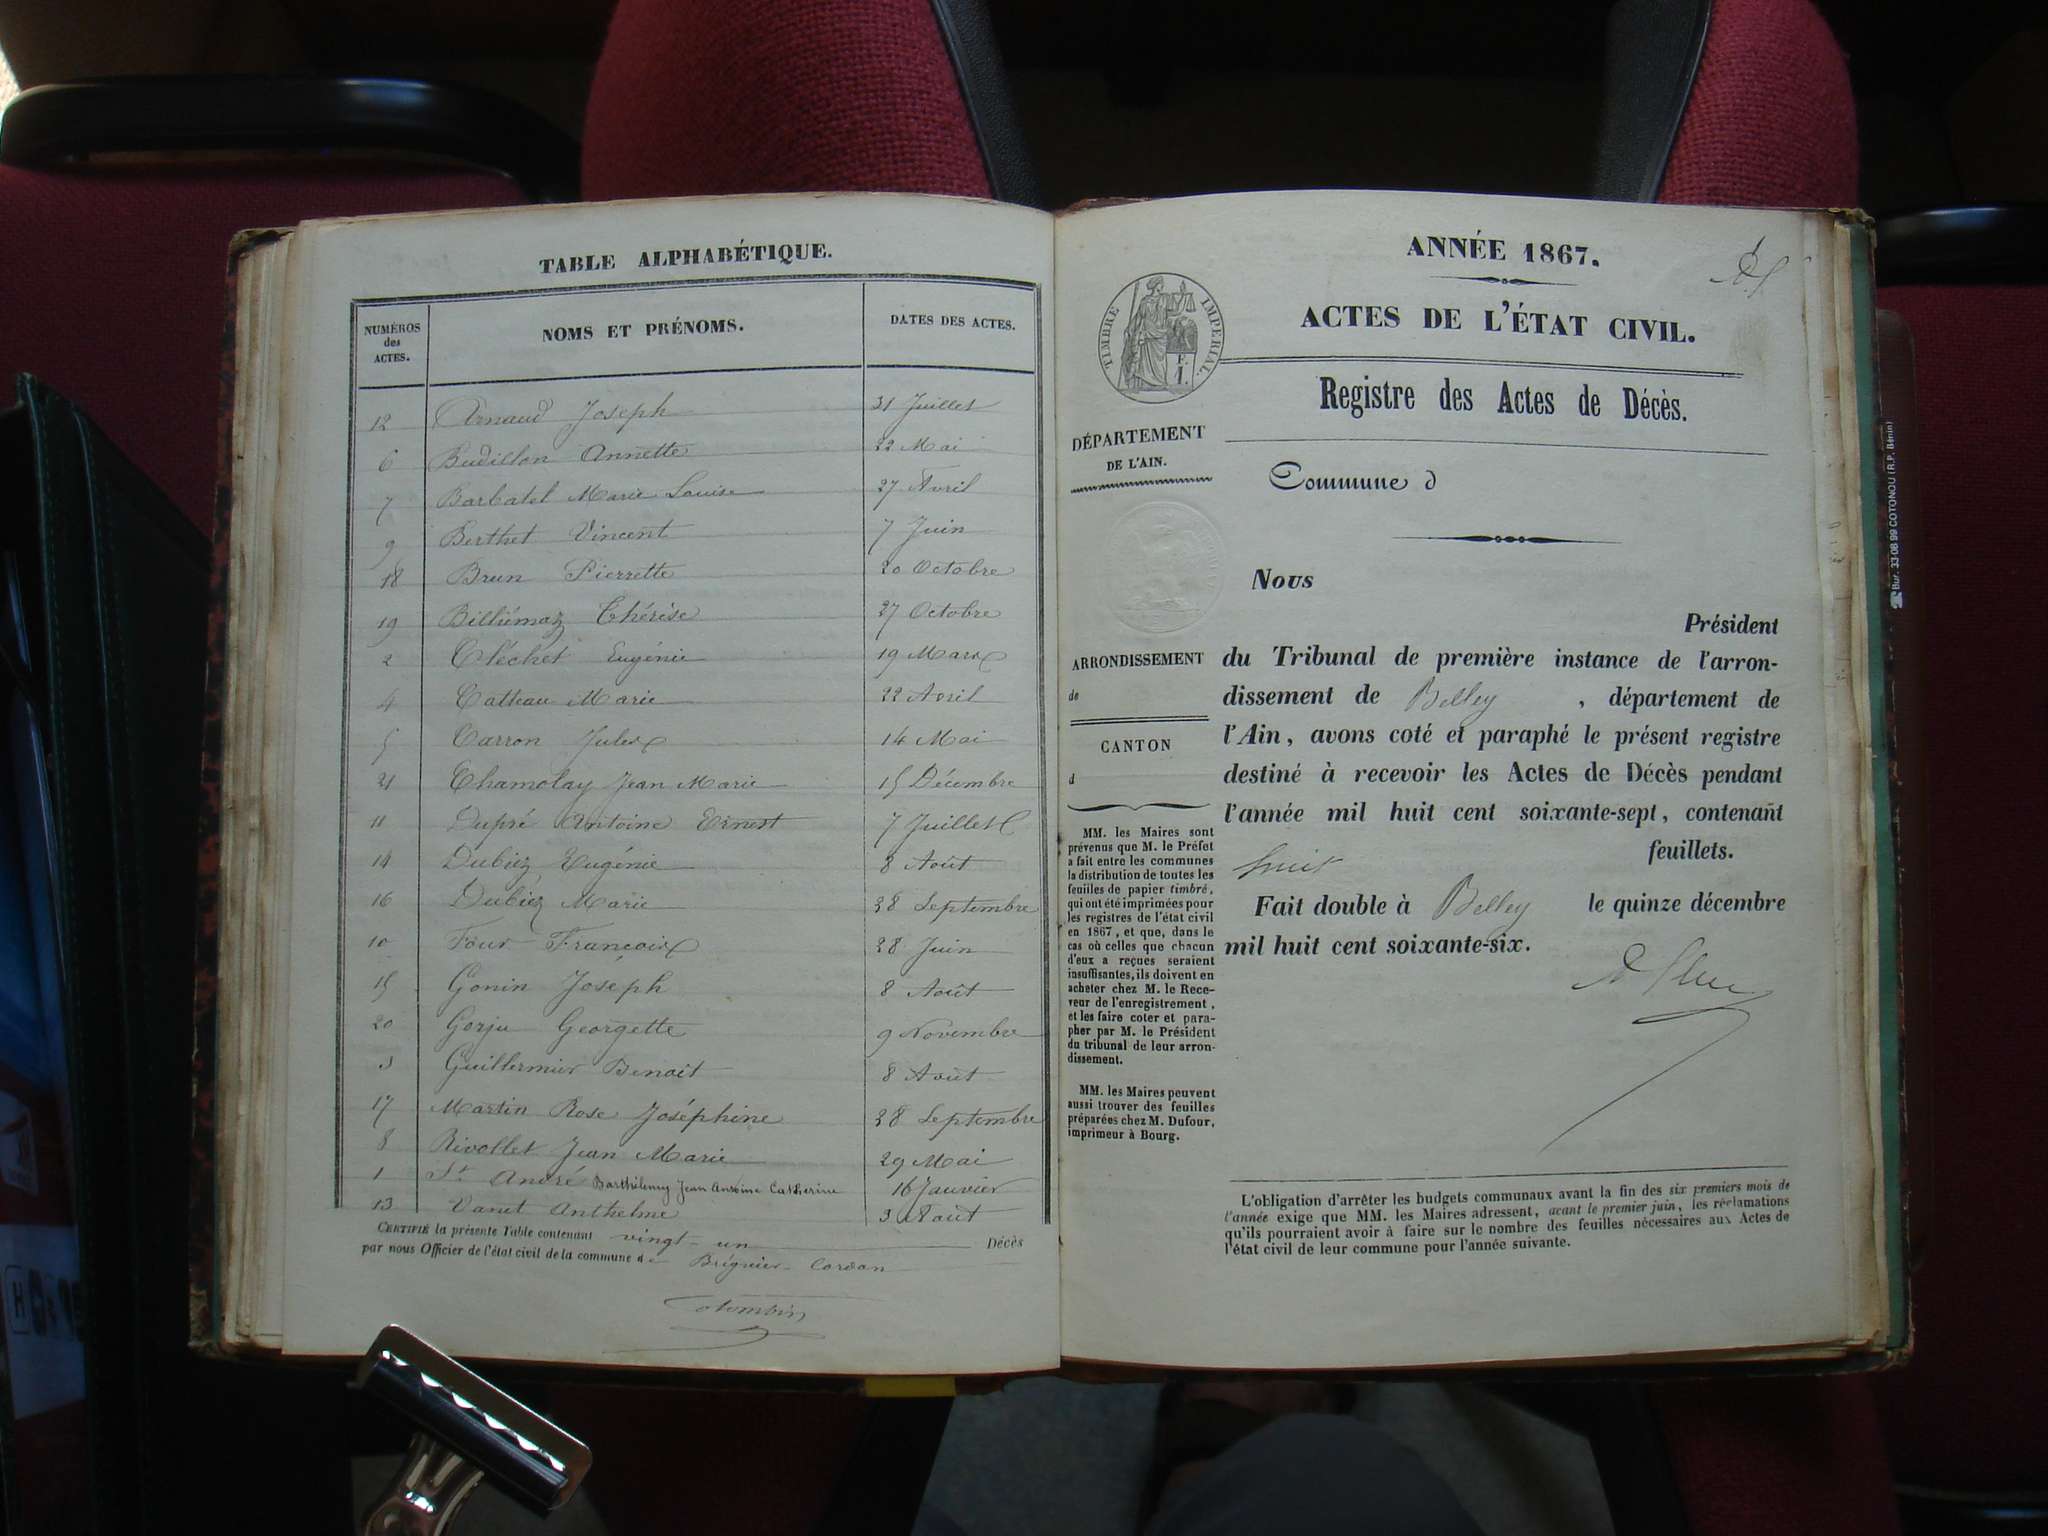 TABLE ALPHABÉTIQUE.
NUMÉROS des ACTES. NOMS ET PRÉNOMS. DATES DES ACTES.
12 Arnaud Joseph 31 Juillet
6 Budillon Annette 22 Mai
7 Barbatel Marie Louise 27 Avril
9 Berthet Vincent 7 Juin
18 Brun Pierrette 20 Octobre
19 Billiémaz Thérèse 27 Octobre
2 Cléchet Eugénie 19 Mars
4 Catteau Marie 22 Avril
5 Carron Jules 14 Mai
21 Chamolay Jean Marie 15 Décembre
11 Dupré Antoine Ernest 7 Juillet
14 Dubiez Eugénie 8 Août
16 Dubiez Marie 28 Septembre
10 Four François 28 Juin
15 Gonin Joseph 8 Août
20 Gorju Georgette 9 Novembre
3 Guillermier Benoit 8 Août
17 Martin Rose Joséphine 28 Septembre
8 Rivollet Jean Marie 29 Mai
1 St André Barthélemy Jean Antoine Catherine 16 Janvier
13 Vanet Anthelme 3 Août
CERTIFIÉ la présente Table contenant vingt-un Décès
par nous Officier de l'état civil de la commune de Brégnier-Cordon
Colombin
ANNÉE 1867.
ACTES DE L'ÉTAT CIVIL.
TIMBRE IMPÉRIAL.
Registre des Actes de Décès.
DÉPARTEMENT
DE L'AIN.
Commune d
Nous
Président
ARRONDISSEMENT
de
CANTON
d
du Tribunal de première instance de l'arron-
dissement de Belley , département de
l'Ain, avons coté et paraphé le présent registre
destiné à recevoir les Actes de Décès pendant
l'année mil huit cent soixante-sept, contenant
huit feuillets.
Fait double à Belley le quinze décembre
mil huit cent soixante-six.
MM. les Maires sont
prévenus que M. le Préfet
a fait entre les communes
la distribution de toutes les
feuilles de papier timbré,
qui ont été imprimées pour
les registres de l'état civil
en 1867, et que, dans le
cas où celles que chacun
d'eux a reçues seraient
insuffisantes, ils doivent en
acheter chez M. le Rece-
veur de l'enregistrement,
et les faire coter et para-
pher par M. le Président
du tribunal de leur arron-
dissement.
MM. les Maires peuvent
aussi trouver des feuilles
préparées chez M. Dufour,
imprimeur à Bourg.
L'obligation d'arrêter les budgets communaux avant la fin des six premiers mois de
l'année exige que MM. les Maires adressent, avant le premier juin, les réclamations
qu'ils pourraient avoir à faire sur le nombre des feuilles nécessaires aux Actes de
l'état civil de leur commune pour l'année suivante.
Bur. 33 08 99 COTONOU (R.P. Bénin)